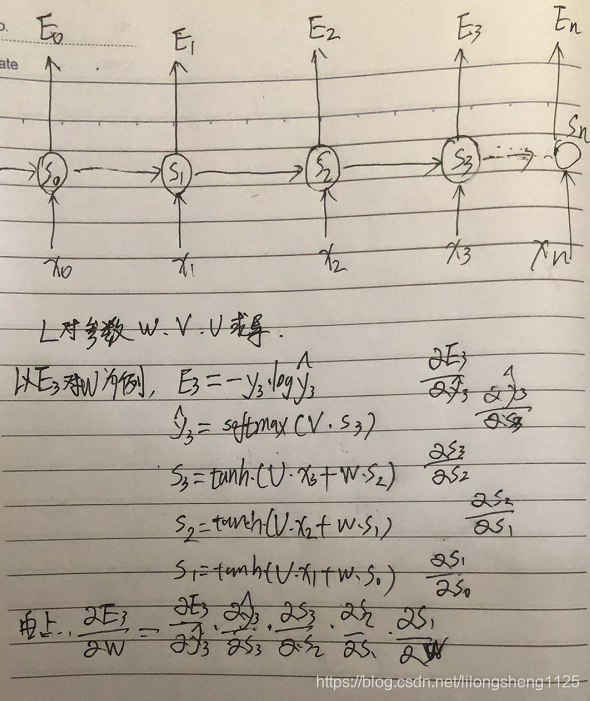 o.
ate
E₀ E₁ E₂ E₃ Eₙ
S₀ S₁ S₂ S₃ Sₙ
x₀ x₁ x₂ x₃ xₙ
L对参数 W、V、U求导.
以E₃对W为例, E₃=-y₃·logŷ₃ ∂E₃/∂ŷ₃ ∂ŷ₃/∂s₃
ŷ₃=softmax(V·s₃)
s₃=tanh·(U·x₃+W·s₂) ∂s₃/∂s₂
s₂=tanh(U·x₂+W·s₁) ∂s₂/∂s₁
s₁=tanh(U·x₁+W·s₀) ∂s₁/∂s₀
由上, ∂E₃/∂W = ∂E₃/∂ŷ₃ · ∂ŷ₃/∂s₃ · ∂s₃/∂s₂ · ∂s₂/∂s₁ · ∂s₁/∂W
https://blog.csdn.net/lilongsheng1125